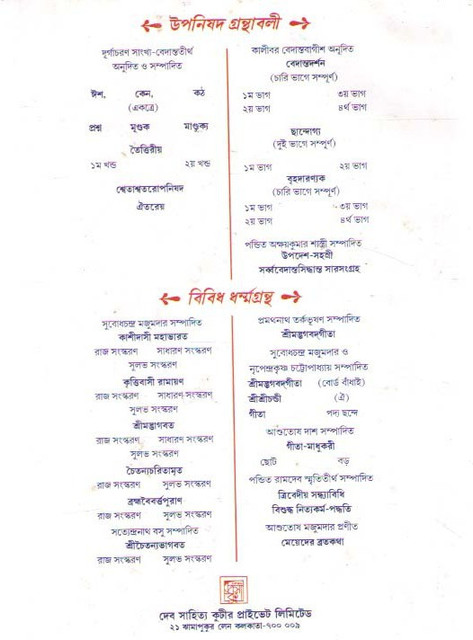 উপনিষদ গ্রন্থাবলী
দূর্গাচরণ সাংখ্য-বেদান্ততীর্থ
অনূদিত ও সম্পাদিত
ঈশ, কেন, কঠ
(একত্রে)
প্রশ্ন মুণ্ডক মাণ্ডুক্য
তৈত্তিরীয়
১ম খন্ড ২য় খন্ড
শ্বেতাশ্বতরোপনিষদ
ঐতরেয়
কালীবর বেদান্তবাগীশ অনূদিত
বেদান্তদর্শন
(চারি ভাগে সম্পূর্ণ)
১ম ভাগ ৩য় ভাগ
২য় ভাগ ৪র্থ ভাগ
ছান্দোগ্য
(দুই ভাগে সম্পূর্ণ)
১ম ভাগ ২য় ভাগ
বৃহদারণ্যক
(চারি ভাগে সম্পূর্ণ)
১ম ভাগ ৩য় ভাগ
২য় ভাগ ৪র্থ ভাগ
পন্ডিত অক্ষয়কুমার শাস্ত্রী সম্পাদিত
উপদেশ-সহস্রী
সর্ব্ববেদান্তসিদ্ধান্ত সারসংগ্রহ
বিবিধ ধর্ম্মগ্রন্থ
সুবোধচন্দ্র মজুমদার সম্পাদিত
কাশীদাসী মহাভারত
রাজ সংস্করণ সাধারণ সংস্করণ
সুলভ সংস্করণ
কৃত্তিবাসী রামায়ণ
রাজ সংস্করণ সাধারণ সংস্করণ
সুলভ সংস্করণ
শ্রীমদ্ভাগবত
রাজ সংস্করণ সাধারণ সংস্করণ
সুলভ সংস্করণ
চৈতন্যচরিতামৃত
রাজ সংস্করণ সুলভ সংস্করণ
ব্রহ্মবৈবর্ত্তপুরাণ
রাজ সংস্করণ সুলভ সংস্করণ
সত্যেন্দ্রনাথ বসু সম্পাদিত
শ্রীচৈতন্যভাগবত
রাজ সংস্করণ সুলভ সংস্করণ
প্রমথনাথ তর্কভূষণ সম্পাদিত
শ্রীমদ্ভগবদ্‌গীতা
সুবোধচন্দ্র মজুমদার ও
নৃপেন্দ্রকৃষ্ণ চট্টোপাধ্যায় সম্পাদিত
শ্রীমদ্ভগবদ্‌গীতা (বোর্ড বাঁধাই)
শ্রীশ্রীচন্ডী (ঐ)
গীতা পদ্য ছন্দে
আশুতোষ দাশ সম্পাদিত
গীতা-মাধুকরী
ছোট বড়
পন্ডিত রামদেব স্মৃতিতীর্থ সম্পাদিত
ত্রিবেদীয় সন্ধ্যাবিধি
বিশুদ্ধ নিত্যকর্ম-পদ্ধতি
আশুতোষ মজুমদার প্রণীত
মেয়েদের ব্রতকথা
দেব সাহিত্য কুটীর প্রাইভেট লিমিটেড
২১ ঝামাপুকুর লেন কলকাতা-৭০০ ০০৯